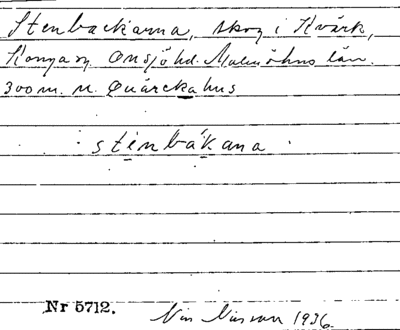 Stenbackarna, skog i Kvärk,
Konga sn. Onsjö hd. Malmöhus län.
300 m. n. Quärckahus
stenbákana
Nr 5712.
1936.